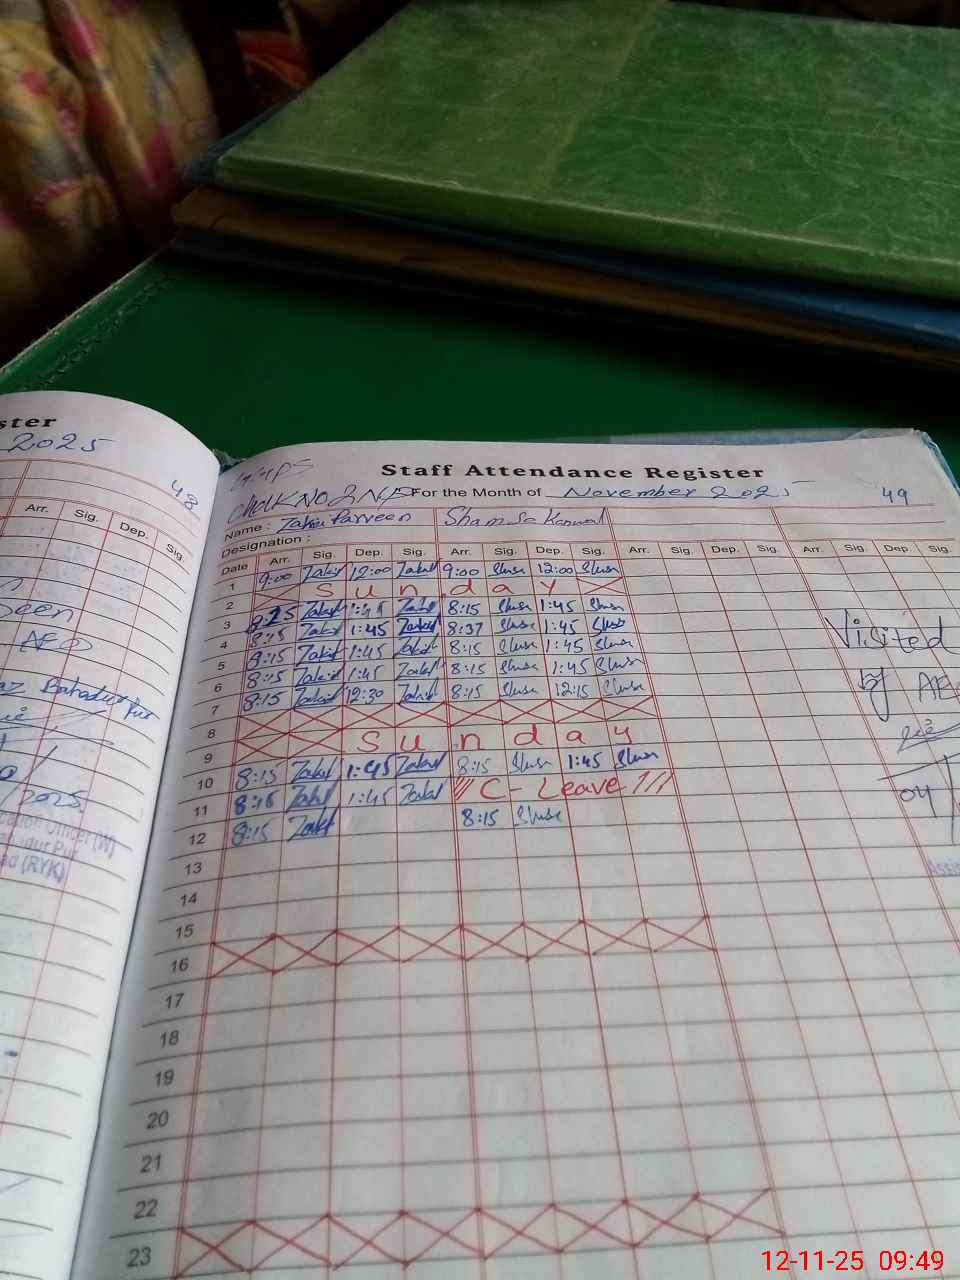 ster
2025
48
Arr. Sig. Dep. Sig.
een
AEO
Bahadur Pur
2025
Officer (W)
(RYK)
GGPS
Chak NO 2 NP
Staff Attendance Register
For the Month of November 2025
49
Name : Zakia Parveen Shamsa Kanwal
Designation :
Date Arr. Sig. Dep. Sig. Arr. Sig. Dep. Sig. Arr. Sig. Dep. Sig. Arr. Sig. Dep. Sig.
1 9:00 Zakia 12:00 Zakia 9:00 Shmsa 12:00 Shmsa
2 Sunday
3 8:25 Zakia 1:45 Zakia 8:15 Shmsa 1:45 Shmsa
4 8:15 Zakia 1:45 Zakia 8:37 Shmsa 1:45 Shmsa
5 8:15 Zakia 1:45 Zakia 8:15 Shmsa 1:45 Shmsa
6 8:15 Zakia 1:45 Zakia 8:15 Shmsa 1:45 Shmsa
7 8:15 Zakia 12:30 Zakia 8:15 Shmsa 12:15 Shmsa
8
9 Sunday
10 8:15 Zakia 1:45 Zakia 8:15 Shmsa 1:45 Shmsa
11 8:15 Zakia 1:45 Zakia C- Leave
12 8:15 Zakia 8:15 Shmsa
13
14
15
16
17
18
19
20
21
22
23
Visited
by AE
04/
Assis
12-11-25 09:49